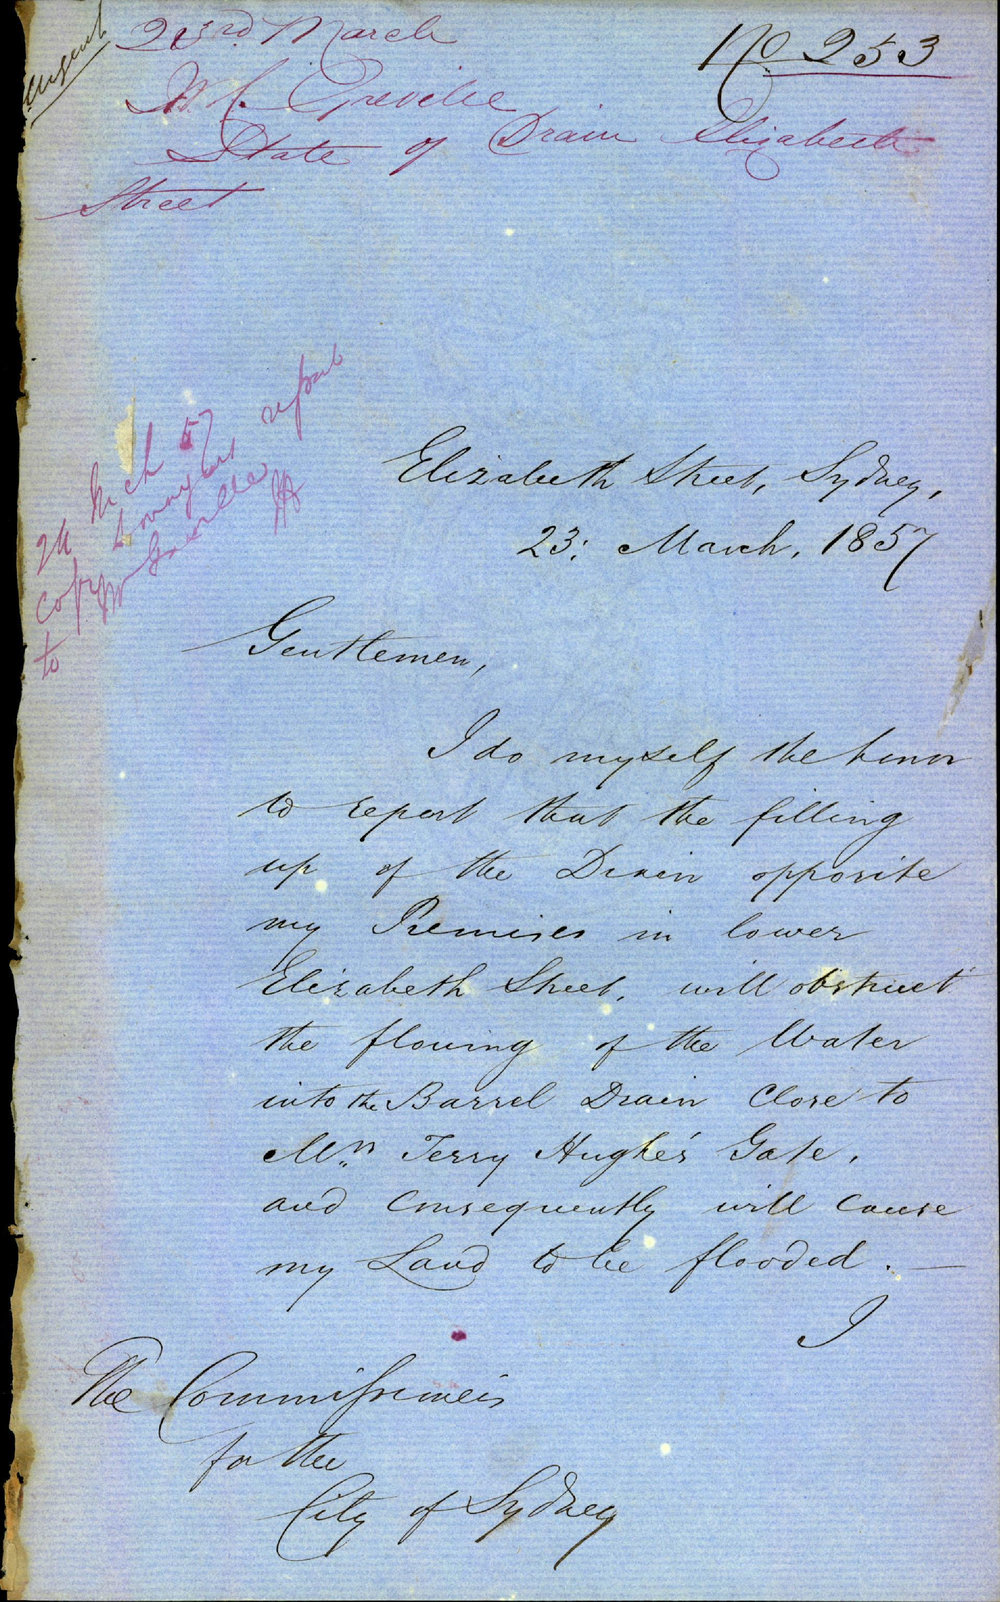 Urgent
23rd March
No 253
W. Greville
State of Drain Elizabeth
Street
24 Mch 57
Surveyors report
copy
to Mr Greville
Elizabeth Street, Sydney,
23: March, 1857
Gentlemen,
I do myself the honor
to report that the filling
up of the Drain opposite
my Premises in lower
Elizabeth Street, will obstruct
the flowing of the Water
into the Barrel Drain Close to
Mrs Terry Hughe's Gate,
and Consequently will Cause
my Land to be flooded. —
I
The Commissioners
for the
City of Sydney